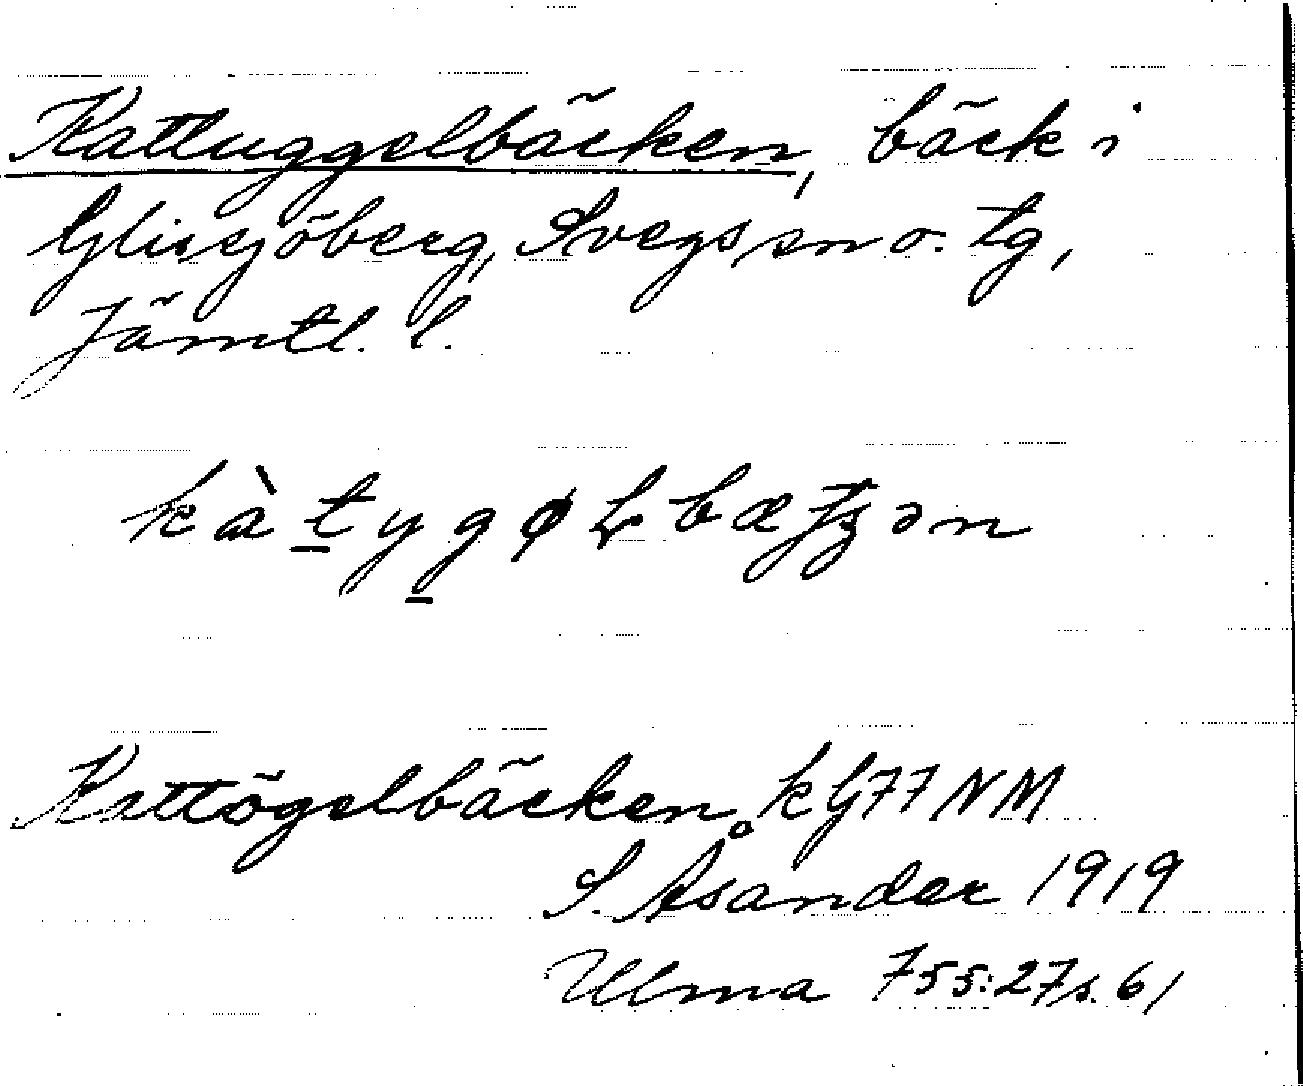 Kattuggelbäcken, bäck i
Glissjöberg, Svegs sn o. tg,
Jämtl. l.
kàtygøɫbæʈʂən
Kattögelbäcken kG77NM
S. Åsander 1919
Ulma 755:27 s. 61